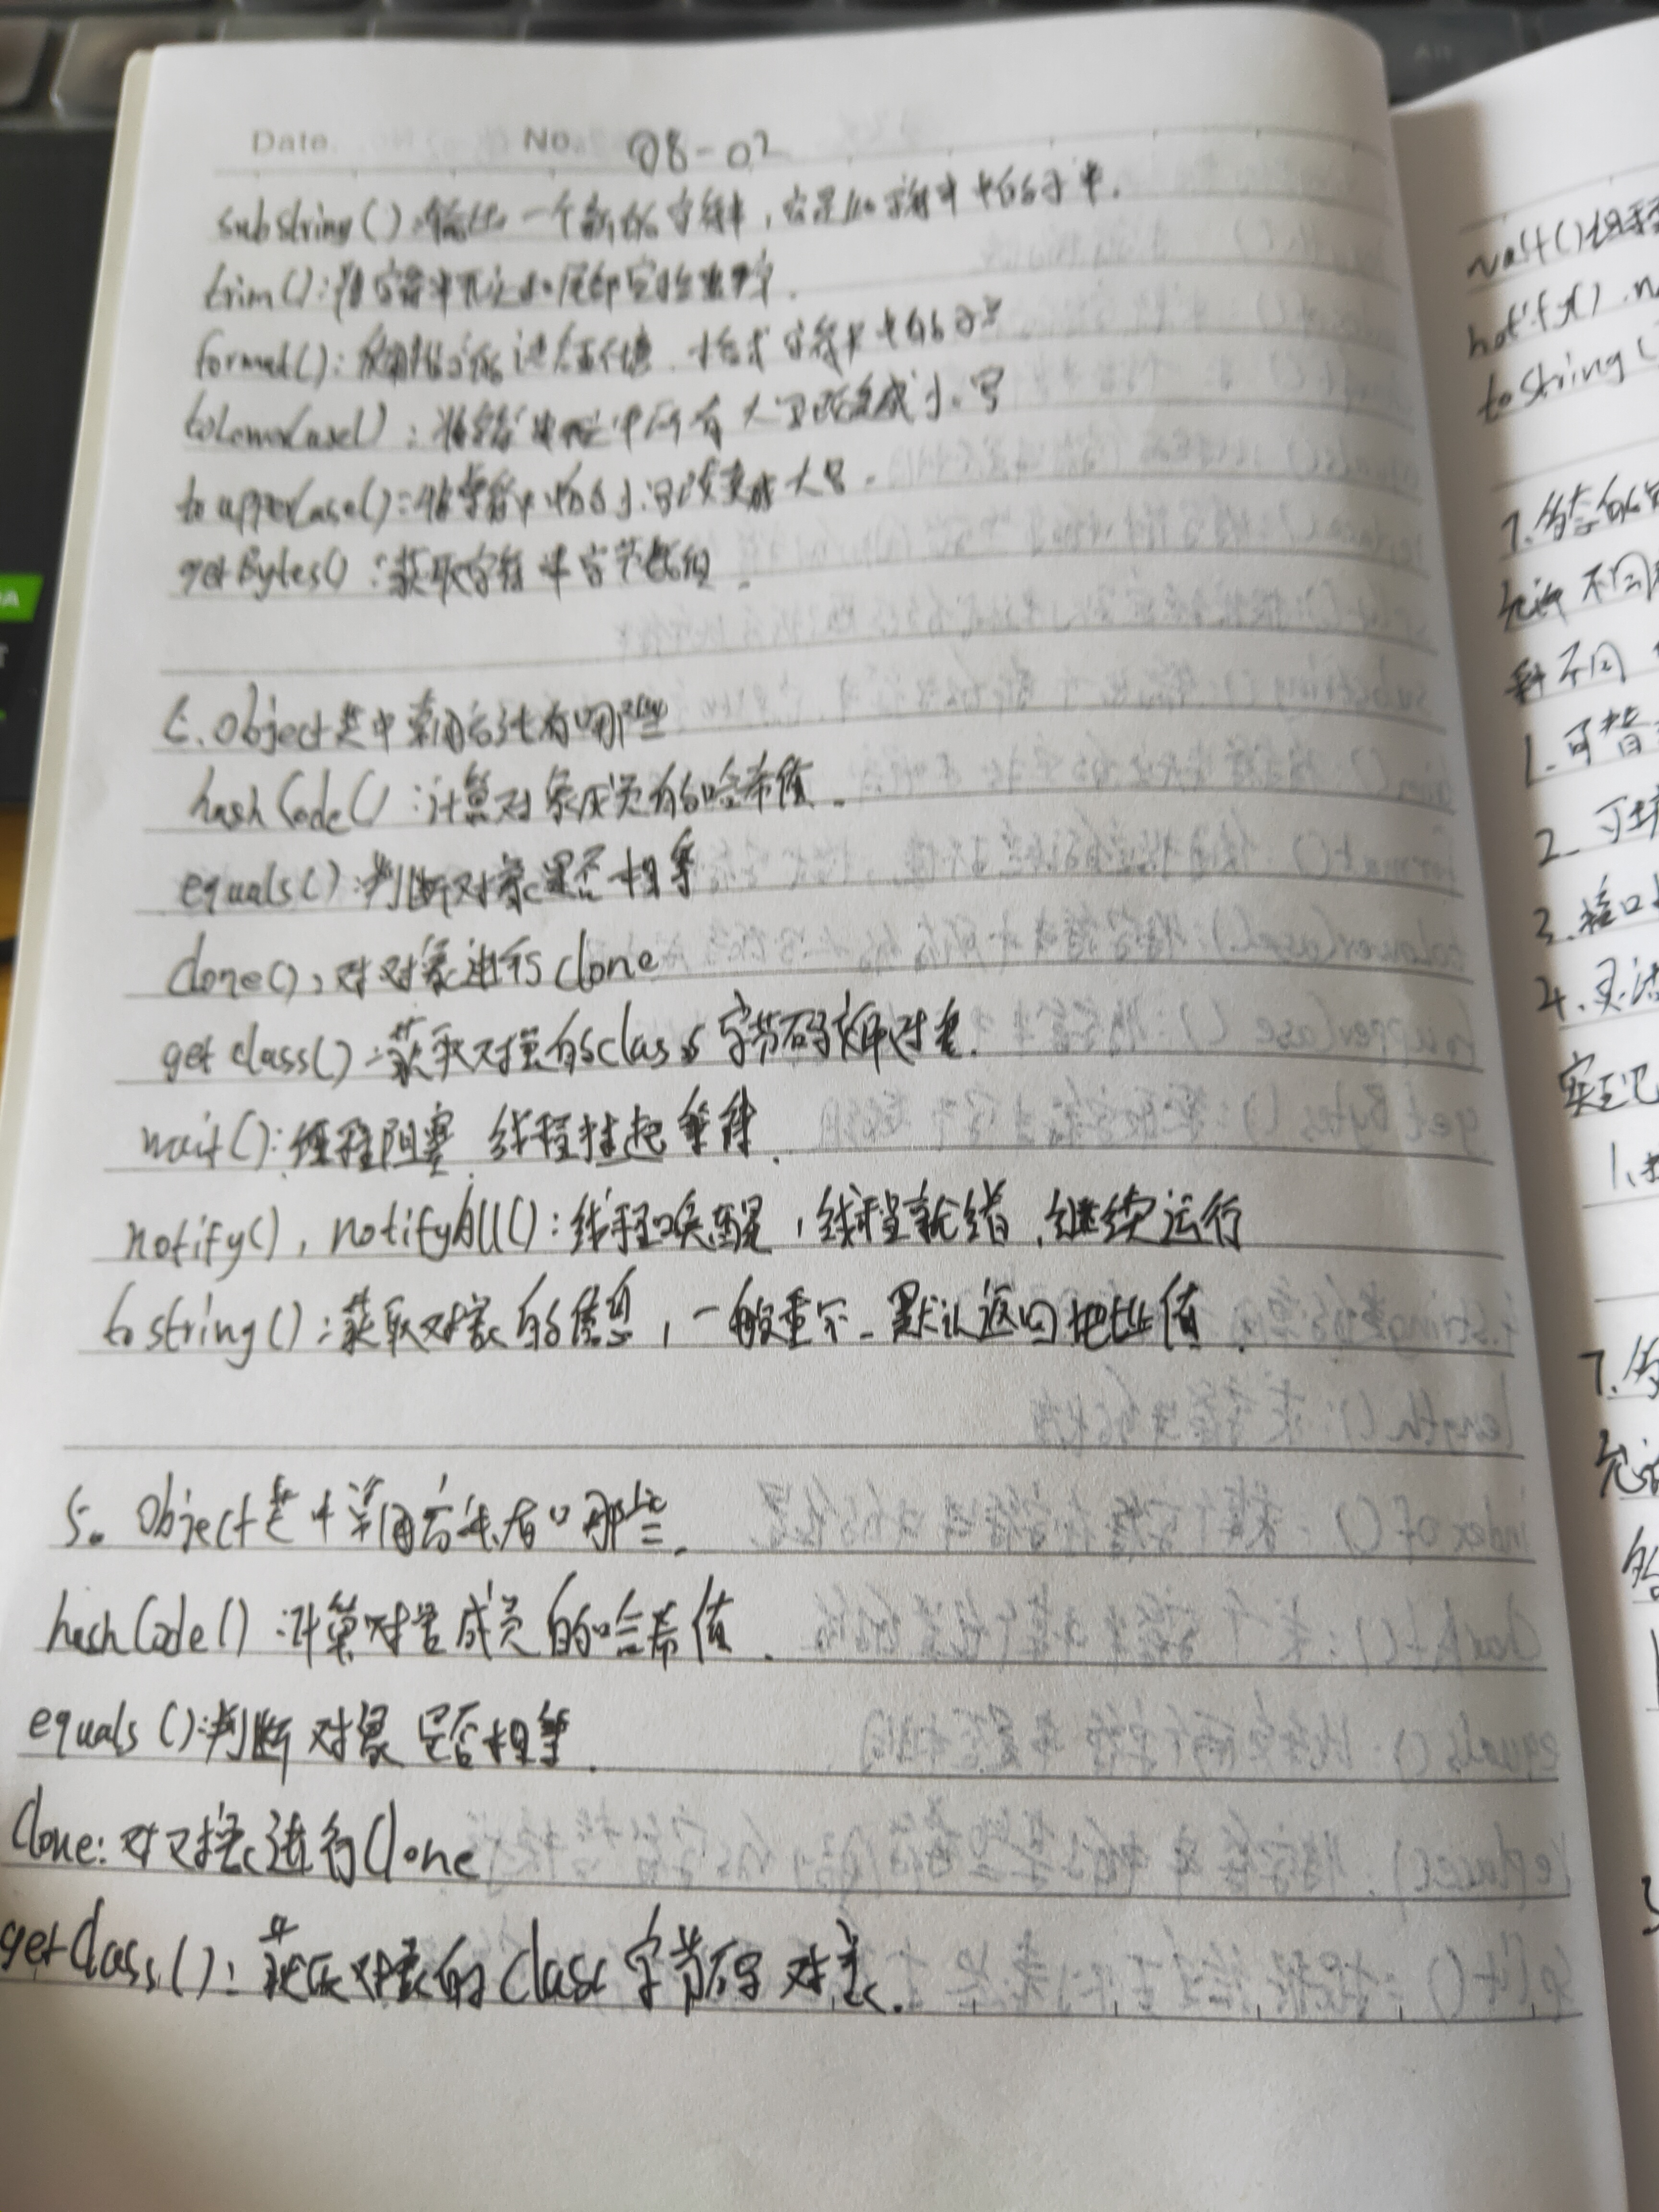 Date. No. 08-02
substring():输出一个新的字符串,它是此字符串中的子串.
trim():将字符串开头和尾部空格
format():使用指定 语言环境、格式字符串
toLowerCase():将字符串中所有大写改变成小写
toupperCase():将字符串中的小写改变成大写.
getBytes():获取字符串字节数组.
5.Object类中常用方法有哪些
hashCode():计算对象成员的哈希值.
equals():判断对象是否相等
clone():对对象进行clone
getclass():获取对象的class字节码文件对象.
wait():线程阻塞 线程挂起等待.
notify(),notifyAll():线程唤醒,线程就绪,继续运行
tostring():获取对象的信息,一般重写.默认返回地址值.
5。Object类中常用方法有哪些.
hashCode():计算对象成员的哈希值.
equals():判断对象是否相等.
Clone:对对象进行Clone
getClass():获取对象的Class字节码对象.
wait()线程
notify().n
toString(
7.
允许不同
1.可替
2.可
3.接口
4.灵活
实现
1.
7.
允许
的